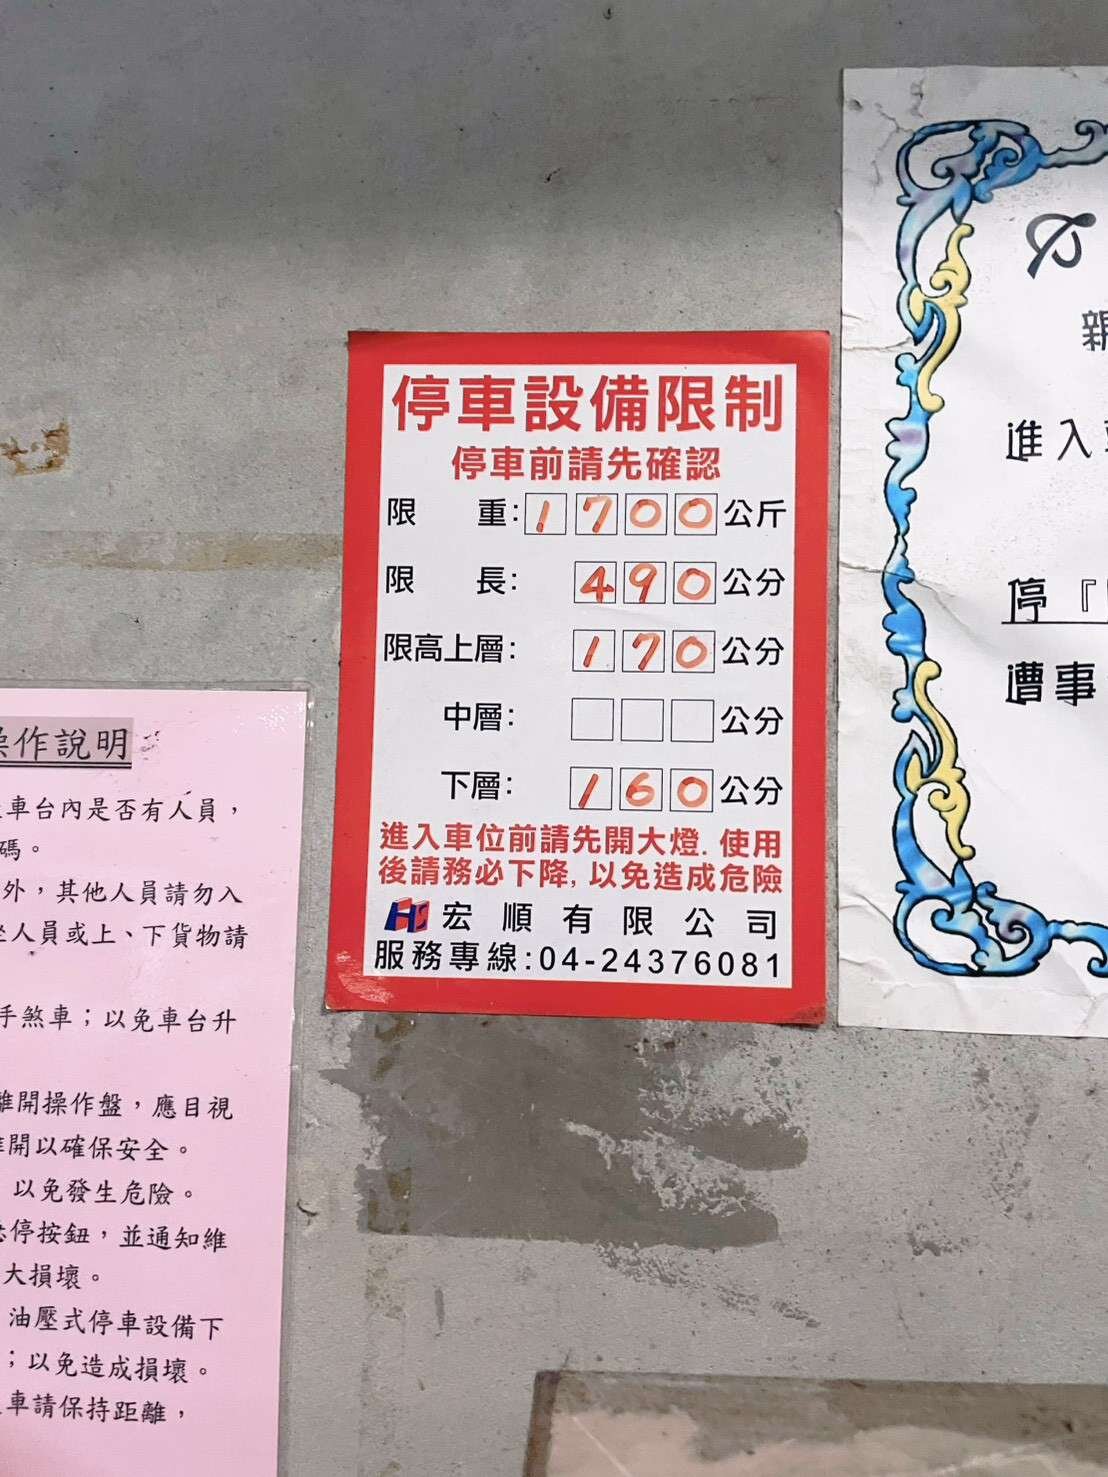 停車設備限制
停車前請先確認
限 重:1700公斤
限 長:490公分
限高上層:170公分
中層:公分
下層:160公分
進入車位前請先開大燈.使用
後請務必下降,以免造成危險
HS 宏順有限公司
服務專線:04-24376081
作說明
車台內是否有人員,
碼。
外,其他人員請勿入
人員或上、下貨物請
手煞車;以免車台升
離開操作盤,應目視
開以確保安全。
以免發生危險。
停按鈕,並通知維
大損壞。
油壓式停車設備下
;以免造成損壞。
車請保持距離,
親
進入
停『
遭事